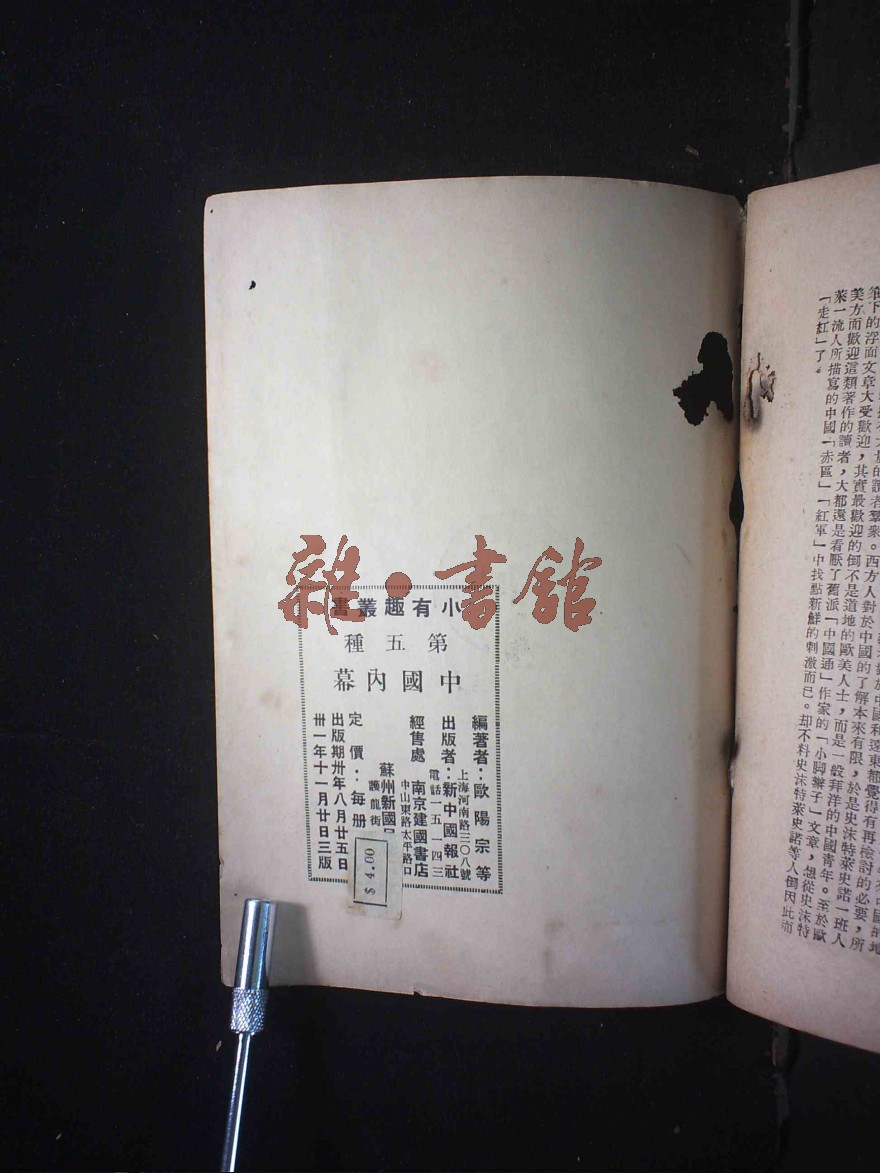 的讀者羣衆。西方人對於中國的了解本來有限，於是史沫特萊史諾一班人
筆下的浮面文章大受歡迎，其實最歡迎的倒不是道地的歐美人士，而是一般拜洋的中國青年。至於歐
美方面歡迎這類著作的讀者，大都還是看厭了舊派「中國通」作家的「小脚辮子」文章，想從史沫特
萊一流人所描寫的中國「赤區」「紅軍」中找點新鮮的刺激而已。却不料史沫特萊史諾等人倒因此而
「走紅」了。
雜·書館
小有趣叢書
第五種
中國內幕
編著者：歐陽宗等
上海河南路三〇八號
出版者：新中國報社
電話一五一四三
經售處 南京建國書店
中山東路太平路口
蘇州新國
護龍街
定價：每册
出版期卅年八月廿五日
卅一年十一月廿日三版
$ 4.00